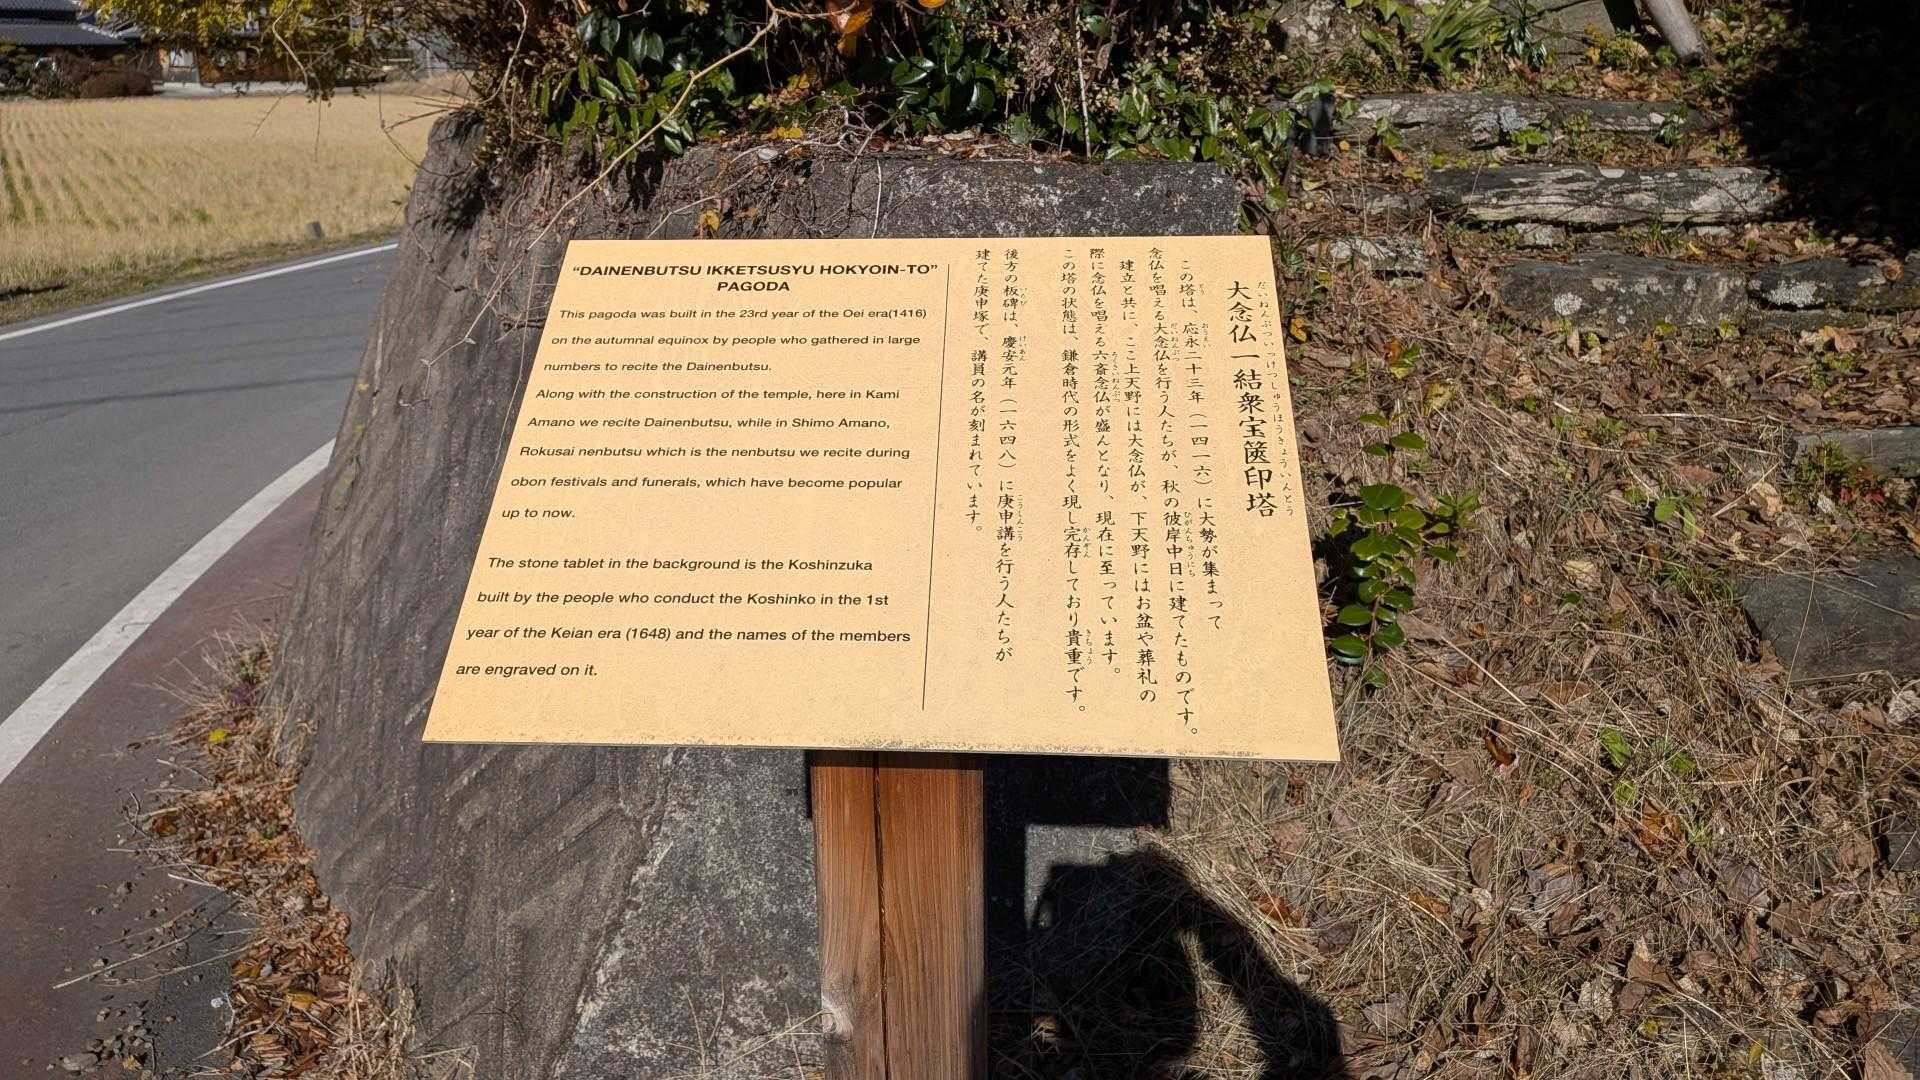 “DAINENBUTSU IKKETSUSYU HOKYOIN-TO”
PAGODA
This pagoda was built in the 23rd year of the Oei era(1416)
on the autumnal equinox by people who gathered in large
numbers to recite the Dainenbutsu.
Along with the construction of the temple, here in Kami
Amano we recite Dainenbutsu, while in Shimo Amano,
Rokusai nenbutsu which is the nenbutsu we recite during
obon festivals and funerals, which have become popular
up to now.
The stone tablet in the background is the Koshinzuka
built by the people who conduct the Koshinko in the 1st
year of the Keian era (1648) and the names of the members
are engraved on it.
大念仏一結衆宝篋印塔
だいねんぶついっけつしゅうほうきょういんとう
この塔は、応永二十三年（一四一六）に大勢が集まって
念仏を唱える大念仏を行う人たちが、秋の彼岸中日に建てたものです。
建立と共に、ここ上天野には大念仏が、下天野にはお盆や葬礼の
際に念仏を唱える六斎念仏が盛んとなり、現在に至っています。
この塔の状態は、鎌倉時代の形式をよく現し完存しており貴重です。
後方の板碑は、慶安元年（一六四八）に庚申講を行う人たちが
建てた庚申塚で、講員の名が刻まれています。